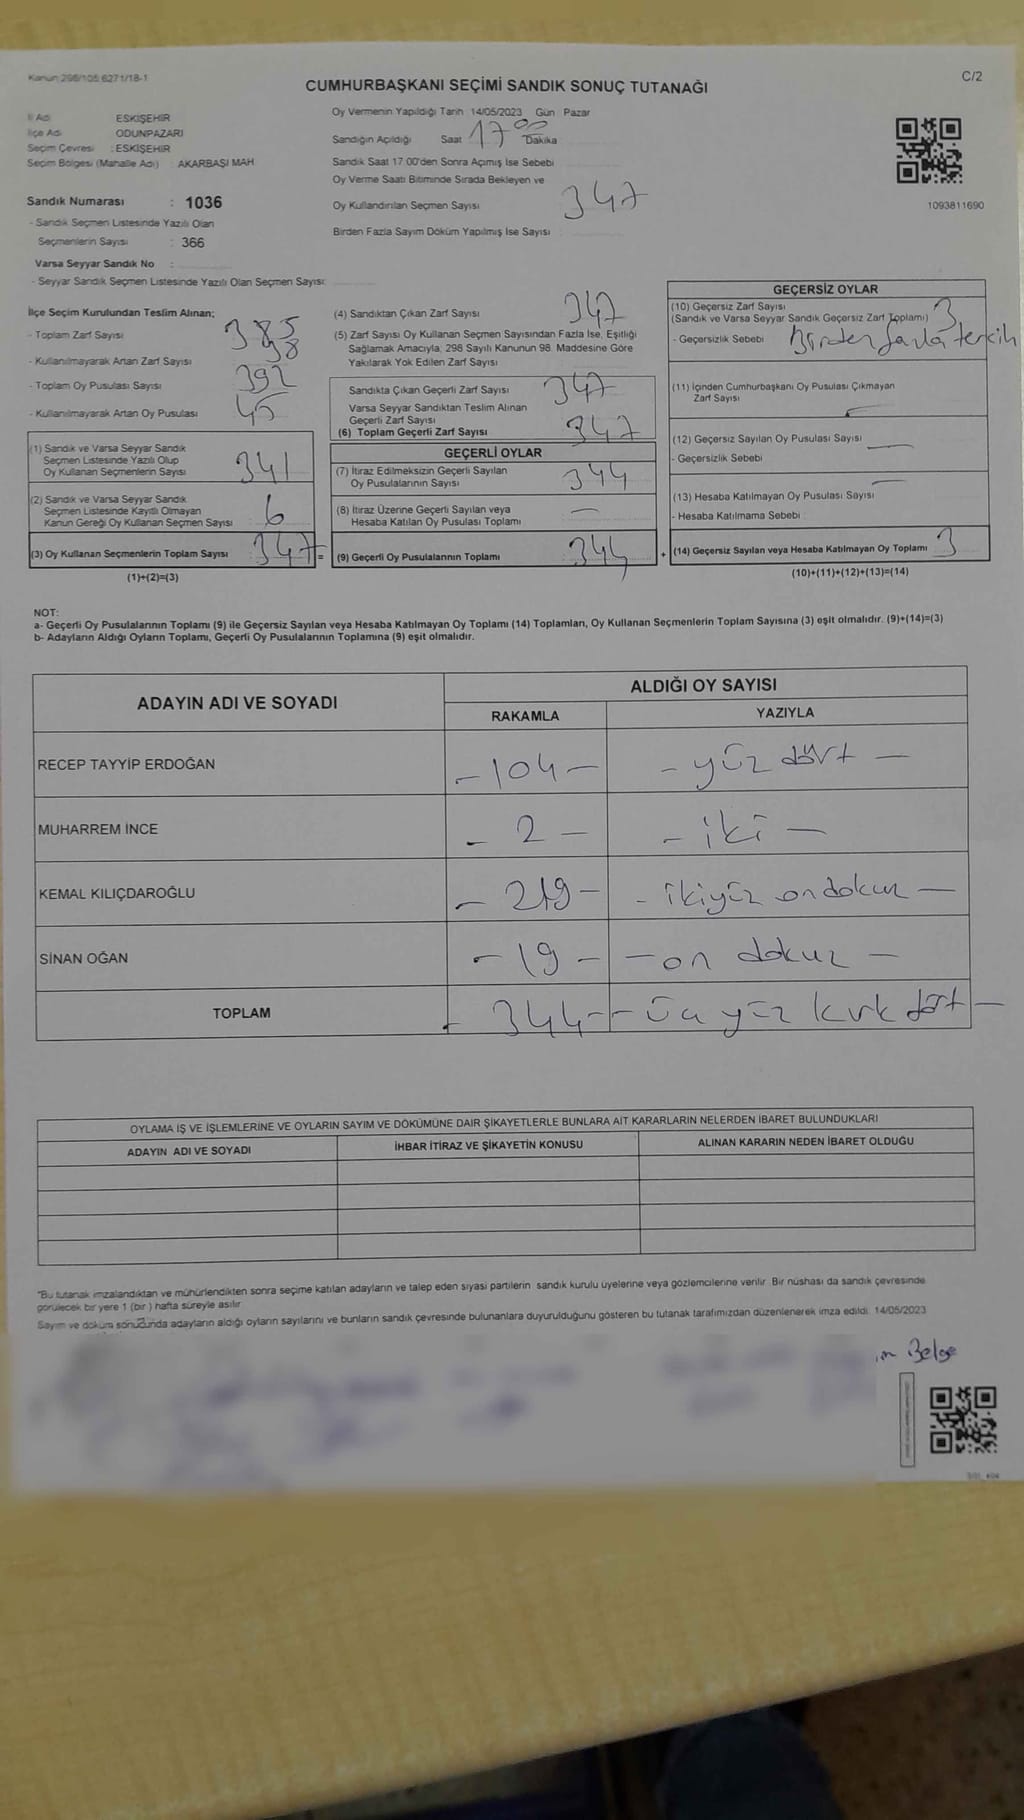 Kanun:298/105 6271/18-1
C/2
CUMHURBAŞKANI SEÇİMİ SANDIK SONUÇ TUTANAĞI
İl Adı ESKİŞEHİR
İlçe Adı ODUNPAZARI
Seçim Çevresi : ESKİŞEHİR
Seçim Bölgesi (Mahalle Adı) : AKARBAŞI MAH
Sandık Numarası : 1036
- Sandık Seçmen Listesinde Yazılı Olan
Seçmenlerin Sayısı : 366
Varsa Seyyar Sandık No :
- Seyyar Sandık Seçmen Listesinde Yazılı Olan Seçmen Sayısı:
Oy Vermenin Yapıldığı Tarih 14/05/2023 Gün Pazar
Sandığın Açıldığı Saat 17 00 Dakika
Sandık Saat 17.00'den Sonra Açımış İse Sebebi
Oy Verme Saati Bitiminde Sırada Bekleyen ve
Oy Kullandırılan Seçmen Sayısı 347
Birden Fazla Sayım Döküm Yapılmış İse Sayısı
1093811690
İlçe Seçim Kurulundan Teslim Alınan;
- Toplam Zarf Sayısı 385
- Kullanılmayarak Artan Zarf Sayısı 38
- Toplam Oy Pusulası Sayısı 392
- Kullanılmayarak Artan Oy Pusulası 45
(1) Sandık ve Varsa Seyyar Sandık
Seçmen Listesinde Yazılı Olup
Oy Kullanan Seçmenlerin Sayısı 341
(2) Sandık ve Varsa Seyyar Sandık
Seçmen Listesinde Kayıtlı Olmayan
Kanun Gereği Oy Kullanan Seçmen Sayısı 6
(3) Oy Kullanan Seçmenlerin Toplam Sayısı 347 =
(1)+(2)=(3)
(4) Sandıktan Çıkan Zarf Sayısı 347
(5) Zarf Sayısı Oy Kullanan Seçmen Sayısından Fazla İse, Eşitliği
Sağlamak Amacıyla, 298 Sayılı Kanunun 98. Maddesine Göre
Yakılarak Yok Edilen Zarf Sayısı
Sandıkta Çıkan Geçerli Zarf Sayısı 347
Varsa Seyyar Sandıktan Teslim Alınan
Geçerli Zarf Sayısı
(6) Toplam Geçerli Zarf Sayısı 347
GEÇERLİ OYLAR
(7) İtiraz Edilmeksizin Geçerli Sayılan
Oy Pusulalarının Sayısı 344
(8) İtiraz Üzerine Geçerli Sayılan veya
Hesaba Katılan Oy Pusulası Toplamı —
(9) Geçerli Oy Pusulalarının Toplamı 344 +
GEÇERSİZ OYLAR
(10) Geçersiz Zarf Sayısı
(Sandık ve Varsa Seyyar Sandık Geçersiz Zarf Toplamı) 3
- Geçersizlik Sebebi Birden fazla tercih
(11) İçinden Cumhurbaşkanı Oy Pusulası Çıkmayan
Zarf Sayısı —
(12) Geçersiz Sayılan Oy Pusulası Sayısı —
- Geçersizlik Sebebi
(13) Hesaba Katılmayan Oy Pusulası Sayısı —
- Hesaba Katılmama Sebebi
(14) Geçersiz Sayılan veya Hesaba Katılmayan Oy Toplamı 3
(10)+(11)+(12)+(13)=(14)
NOT:
a- Geçerli Oy Pusulalarının Toplamı (9) ile Geçersiz Sayılan veya Hesaba Katılmayan Oy Toplamı (14) Toplamları, Oy Kullanan Seçmenlerin Toplam Sayısına (3) eşit olmalıdır. (9)+(14)=(3)
b- Adayların Aldığı Oyların Toplamı, Geçerli Oy Pusulalarının Toplamına (9) eşit olmalıdır.
ADAYIN ADI VE SOYADI ALDIĞI OY SAYISI
RAKAMLA YAZIYLA
RECEP TAYYİP ERDOĞAN - 104 - - yüz dört -
MUHARREM İNCE - 2 - - iki -
KEMAL KILIÇDAROĞLU - 219 - - ikiyüz ondokuz -
SİNAN OĞAN - 19 - - on dokuz -
TOPLAM - 344 - - üç yüz kırk dört -
OYLAMA İŞ VE İŞLEMLERİNE VE OYLARIN SAYIM VE DÖKÜMÜNE DAİR ŞİKAYETLERLE BUNLARA AİT KARARLARIN NELERDEN İBARET BULUNDUKLARI
ADAYIN ADI VE SOYADI İHBAR İTİRAZ VE ŞİKAYETİN KONUSU ALINAN KARARIN NEDEN İBARET OLDUĞU
*Bu tutanak imzalandıktan ve mühürlendikten sonra seçime katılan adayların ve talep eden siyasi partilerin sandık kurulu üyelerine veya gözlemcilerine verilir. Bir nüshası da sandık çevresinde
görülecek bir yere 1 (bir ) hafta süreyle asılır
Sayım ve döküm sonucunda adayların aldığı oyların sayılarını ve bunların sandık çevresinde bulunanlara duyurulduğunu gösteren bu tutanak tarafımızdan düzenlenerek imza edildi. 14/05/2023
Belge